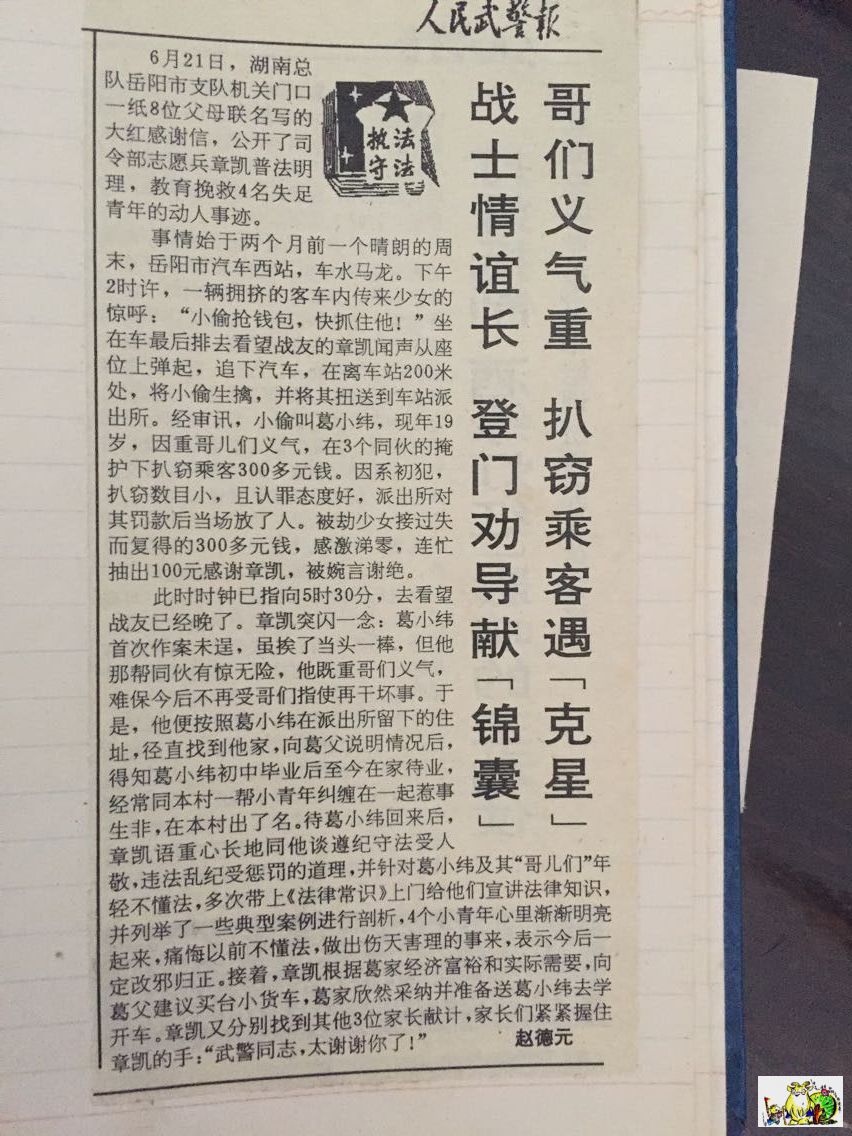 人民武警报
哥们义气重 扒窃乘客遇「克星」
战士情谊长 登门劝导献「锦囊」
执法
守法
6月21日，湖南总
队岳阳市支队机关门口
一纸8位父母联名写的
大红感谢信，公开了司
令部志愿兵章凯普法明
理，教育挽救4名失足
青年的动人事迹。
事情始于两个月前一个晴朗的周
末，岳阳市汽车西站，车水马龙。下午
2时许，一辆拥挤的客车内传来少女的
惊呼：“小偷抢钱包，快抓住他！”坐
在车最后排去看望战友的章凯闻声从座
位上弹起，追下汽车，在离车站200米
处，将小偷生擒，并将其扭送到车站派
出所。经审讯，小偷叫葛小纬，现年19
岁，因重哥儿们义气，在3个同伙的掩
护下扒窃乘客300多元钱。因系初犯，
扒窃数目小，且认罪态度好，派出所对
其罚款后当场放了人。被劫少女接过失
而复得的300多元钱，感激涕零，连忙
抽出100元感谢章凯，被婉言谢绝。
此时时钟已指向5时30分，去看望
战友已经晚了。章凯突闪一念：葛小纬
首次作案未逞，虽挨了当头一棒，但他
那帮同伙有惊无险，他既重哥们义气，
难保今后不再受哥们指使再干坏事。于
是，他便按照葛小纬在派出所留下的住
址，径直找到他家，向葛父说明情况后，
得知葛小纬初中毕业后至今在家待业，
经常同本村一帮小青年纠缠在一起惹事
生非，在本村出了名。待葛小纬回来后，
章凯语重心长地同他谈遵纪守法受人
敬，违法乱纪受惩罚的道理，并针对葛小纬及其“哥儿们”年
轻不懂法，多次带上《法律常识》上门给他们宣讲法律知识，
并列举了一些典型案例进行剖析，4个小青年心里渐渐明亮
起来，痛悔以前不懂法，做出伤天害理的事来，表示今后一
定改邪归正。接着，章凯根据葛家经济富裕和实际需要，向
葛父建议买台小货车，葛家欣然采纳并准备送葛小纬去学
开车。章凯又分别找到其他3位家长献计，家长们紧紧握住
章凯的手：“武警同志，太谢谢你了！” 赵德元